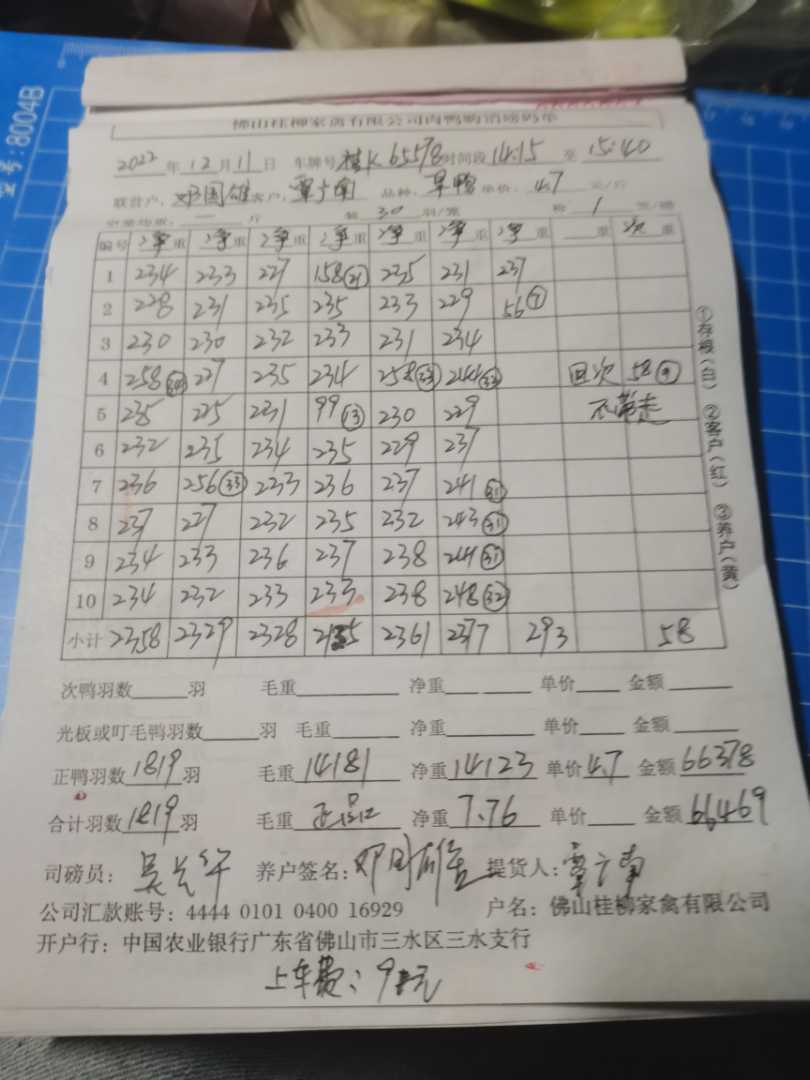 佛山桂柳家禽有限公司肉鸭购销磅码单
2022年12月11日 车牌号 桂K65578 时间段 14:15 至 15:40
联营户: 邓国雄 客户: 覃广南 品种: 旱鸭 单价: 4.7 元/斤
斤 装 30 羽/笼 1 元/
编号 净重 净重 净重 净重 净重 净重 净重 重 次重
1 234 233 227 158(21) 235 231 237
2 228 231 235 235 233 229 56(7)
3 230 230 232 233 231 234
4 258 227 235 234 258(33) 244(32) 回次 58(9)
5 235 225 231 99(13) 230 229 不带走
6 232 235 234 235 229 237
7 236 256(33) 233 236 237 241(31)
8 237 227 232 235 232 243(31)
9 234 233 236 237 238 241(31)
10 234 232 233 233 238 248(32)
小计 2358 2329 2328 2135 2361 2377 293 58
①存根(白) ②客户(红) ③养户(黄)
次鸭羽数 羽 毛重 净重 单价 金额
光板或叮毛鸭羽数 羽 毛重 净重 单价 金额
正鸭羽数 1819 羽 毛重 14181 净重 14123 单价 4.7 金额 66378
合计羽数 1819 羽 毛重 净重 7.76 单价 金额 66469
司磅员: 养户签名: 邓国雄 提货人: 覃广南
公司汇款账号: 4444 0101 0400 16929 户名: 佛山桂柳家禽有限公司
开户行: 中国农业银行广东省佛山市三水区三水支行
上车费: 91元
型号: 8004B